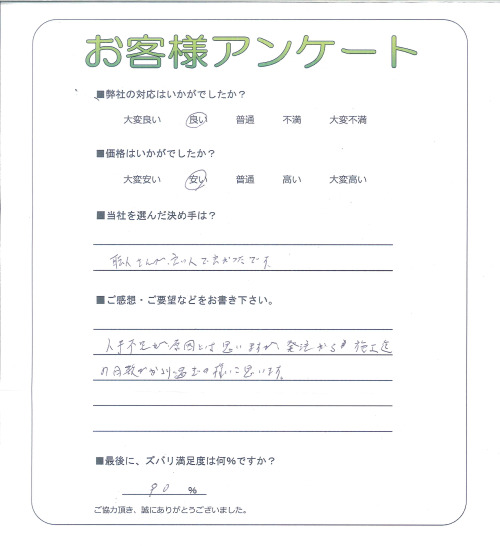 お客様アンケート
■弊社の対応はいかがでしたか？
大変良い 良い 普通 不満 大変不満
■価格はいかがでしたか？
大変安い 安い 普通 高い 大変高い
■当社を選んだ決め手は？
職人さんが、良い人で良かったです。
■ご感想・ご要望などをお書き下さい。
人手不足が原因とは思いますが、発注から施工迄
の日数がかかり過ぎの様に思います。
■最後に、ズバリ満足度は何％ですか？
90 ％
ご協力頂き、誠にありがとうございました。